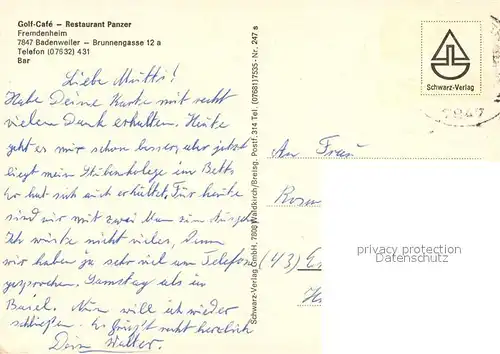 Golf-Café – Restaurant Panzer
Fremdenheim
7847 Badenweiler – Brunnengasse 12 a
Telefon (07632) 431
Bar
Liebe Mutti!
Habe Deine Karte mit recht
vielen Dank erhalten. Heute
geht es mir schon besser, aber jetzt
liegt mein Stubenkollege im Bett.
Er hat sich auch erkältet. Für heute
sind wir mit zwei
Ich nicht vieles, denn
wir haben ja sehr viel am Telefon
gesprochen. Samstag
Basel. Nun will ich wieder
schließen. Es grüßt recht herzlich
Dein Walter.
Schwarz-Verlag GmbH, 7808 Waldkirch/Breisg. Postf. 314 Tel. (07681) 7535 - Nr. 247 s
Schwarz-Verlag
An Frau
privacy protection
Datenschutz
(43)